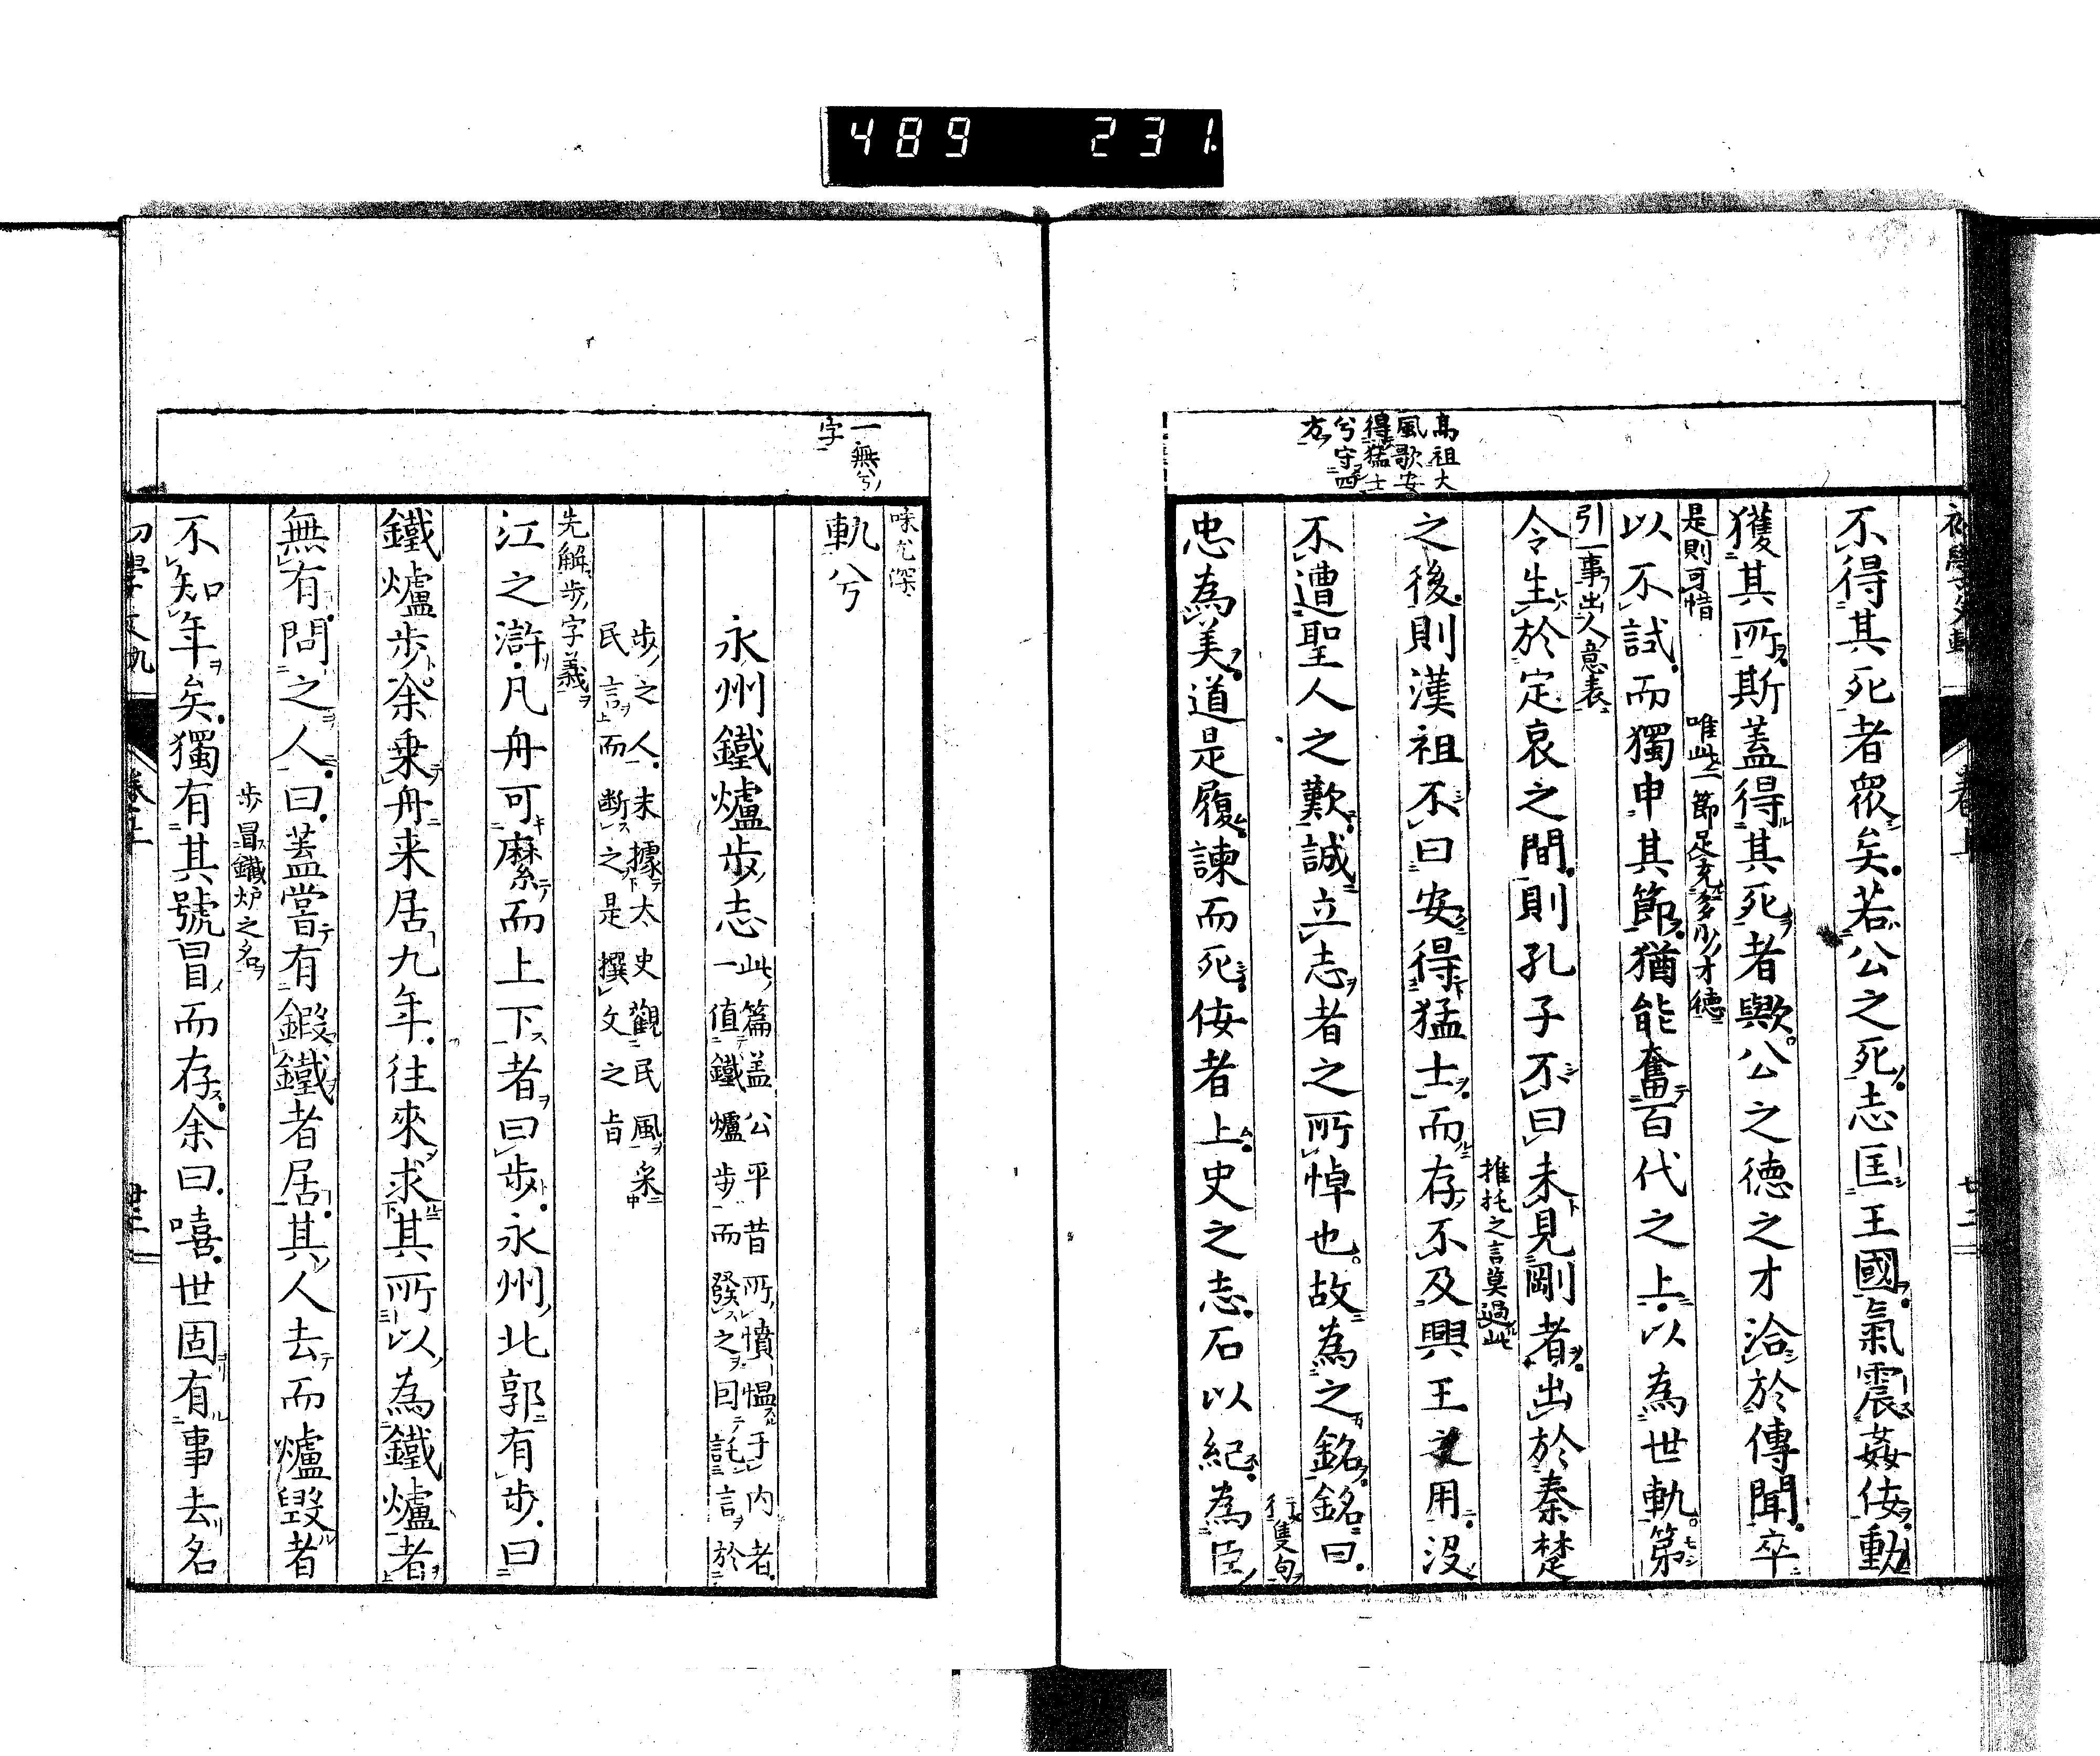 489 231
高祖大
風歌安
得猛士
兮守四
方
不得其死者眾矣若公之死志匡王國氣震姦佞動
獲其所斯蓋得其死者歟公之德之才洽於傳聞卒
是則可惜 唯此一節足充多少才德
以不試而獨申其節猶能奮百代之上以為世軌第
引一事出人意表
令生於定哀之間則孔子不曰未見剛者出於秦楚
推托之言莫過此
之後則漢祖不曰安得猛士而存不及興王之用沒
不遭聖人之歎誠立志者之所悼也故為之銘銘曰
隻句
忠為美道是履諫而死佞者上史之志石以紀為臣
一無兮
字
味尤深
軌兮
永州鐵爐步志 此篇蓋公平昔所憤慍于内者
一值鐵爐步而發之因託言於
步之人末據太史觀民風采
民言而断之是撰文之旨
先解步字義
江之滸凡舟可縻而上下者曰步永州北郭有步曰
鐵爐步余乗舟来居九年往來求其所以為鐵爐者
無有問之人曰蓋嘗有鍛鐵者居其人去而爐毀者
步冒鐵炉之名
不知年矣獨有其號冒而存余曰嘻世固有事去名
初學文軌 卷上